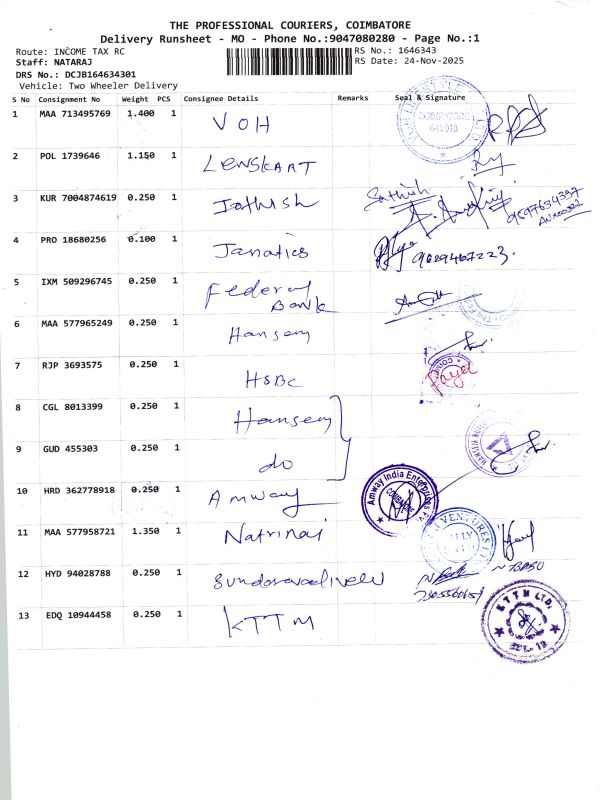 THE PROFESSIONAL COURIERS, COIMBATORE
Delivery Runsheet - MO - Phone No.:9047080280 - Page No.:1
Route: INCOME TAX RC
RS No.: 1646343
Staff: NATARAJ
RS Date: 24-Nov-2025
DRS No.: DCJB164634301
Vehicle: Two Wheeler Delivery
S No Consignment No Weight PCS Consignee Details Remarks Seal & Signature
1 MAA 713495769 1.400 1 VOH
COIMBATORE
641018
2 POL 1739646 1.150 1 LENSKART
3 KUR 7004874619 0.250 1 Sathish Sathish
4 PRO 18680256 0.100 1 Janatics 9629467223.
5 IXM 509296745 0.250 1 Federal Bank
6 MAA 577965249 0.250 1 Hansem
7 RJP 3693575 0.250 1 HSBC
8 CGL 8013399 0.250 1 Hansem
9 GUD 455303 0.250 1 do
10 HRD 362778918 0.250 1 Amway Amway India Enterprises Pvt
11 MAA 577958721 1.350 1 Natrinai
VENTURES
12 HYD 94028788 0.250 1
13 EDQ 10944458 0.250 1 KTTM
K T T M LTD.